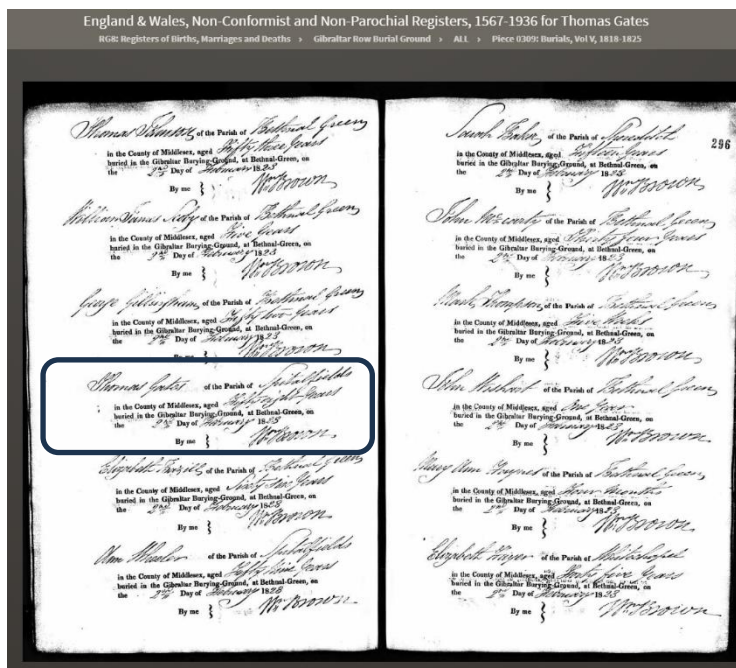 England & Wales, Non-Conformist and Non-Parochial Registers, 1567-1936 for Thomas Gates
RG8: Registers of Births, Marriages and Deaths › Gibraltar Row Burial Ground › ALL › Piece 0309: Burials, Vol V, 1818-1825
Thomas of the Parish of Bethnal Green
in the County of Middlesex, aged Fifty three Years
buried in the Gibraltar Burying-Ground, at Bethnal-Green, on
the 2nd Day of February 1823
By me } Wm Brown
William James of the Parish of Bethnal Green
in the County of Middlesex, aged Five Years
buried in the Gibraltar Burying-Ground, at Bethnal-Green, on
the 2nd Day of February 1823
By me } Wm Brown
George Gillingham of the Parish of Bethnal Green
in the County of Middlesex, aged Fifty two Years
buried in the Gibraltar Burying-Ground, at Bethnal-Green, on
the 2nd Day of February 1823
By me } Wm Brown
Thomas Gates of the Parish of Spitalfields
in the County of Middlesex, aged Fifty eight Years
buried in the Gibraltar Burying-Ground, at Bethnal-Green, on
the 2nd Day of February 1823
By me } Wm Brown
Elizabeth of the Parish of Bethnal Green
in the County of Middlesex, aged Sixty Six Years
buried in the Gibraltar Burying-Ground, at Bethnal-Green, on
the 2nd Day of February 1823
By me } Wm Brown
Ann Wheeler of the Parish of Spitalfields
in the County of Middlesex, aged Fifty Nine Years
buried in the Gibraltar Burying-Ground, at Bethnal-Green, on
the 2nd Day of February 1823
By me } Wm Brown
296
Sarah Baker of the Parish of Shoreditch
in the County of Middlesex, aged Fifteen Years
buried in the Gibraltar Burying-Ground, at Bethnal-Green, on
the 2nd Day of February 1823
By me } Wm Brown
John of the Parish of Bethnal Green
in the County of Middlesex, aged Thirty Four Years
buried in the Gibraltar Burying-Ground, at Bethnal-Green, on
the 2nd Day of February 1823
By me } Wm Brown
Thompson of the Parish of Bethnal Green
in the County of Middlesex, aged Five Weeks
buried in the Gibraltar Burying-Ground, at Bethnal-Green, on
the 2nd Day of February 1823
By me } Wm Brown
John of the Parish of Bethnal Green
in the County of Middlesex, aged One Year
buried in the Gibraltar Burying-Ground, at Bethnal-Green, on
the 2nd Day of February 1823
By me } Wm Brown
Mary Ann Haynes of the Parish of Bethnal Green
in the County of Middlesex, aged Four Months
buried in the Gibraltar Burying-Ground, at Bethnal-Green, on
the 2nd Day of February 1823
By me } Wm Brown
Elizabeth of the Parish of Whitechapel
in the County of Middlesex, aged Forty five Years
buried in the Gibraltar Burying-Ground, at Bethnal-Green, on
the 2nd Day of February 1823
By me } Wm Brown